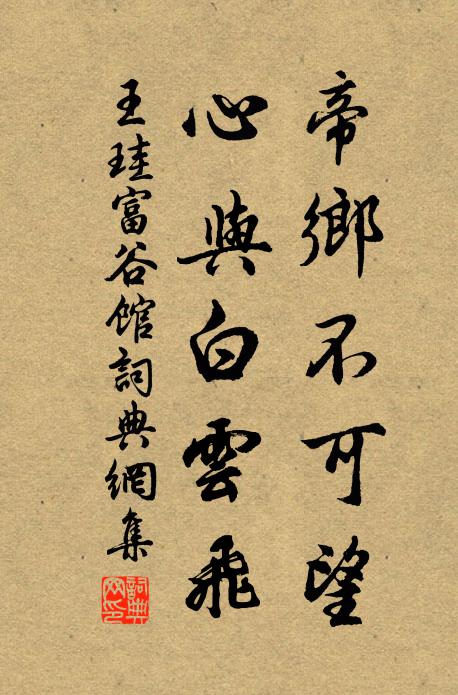 帝鄉不可望
心與白雲飛
王珪富谷館詞典網集
詞典網印